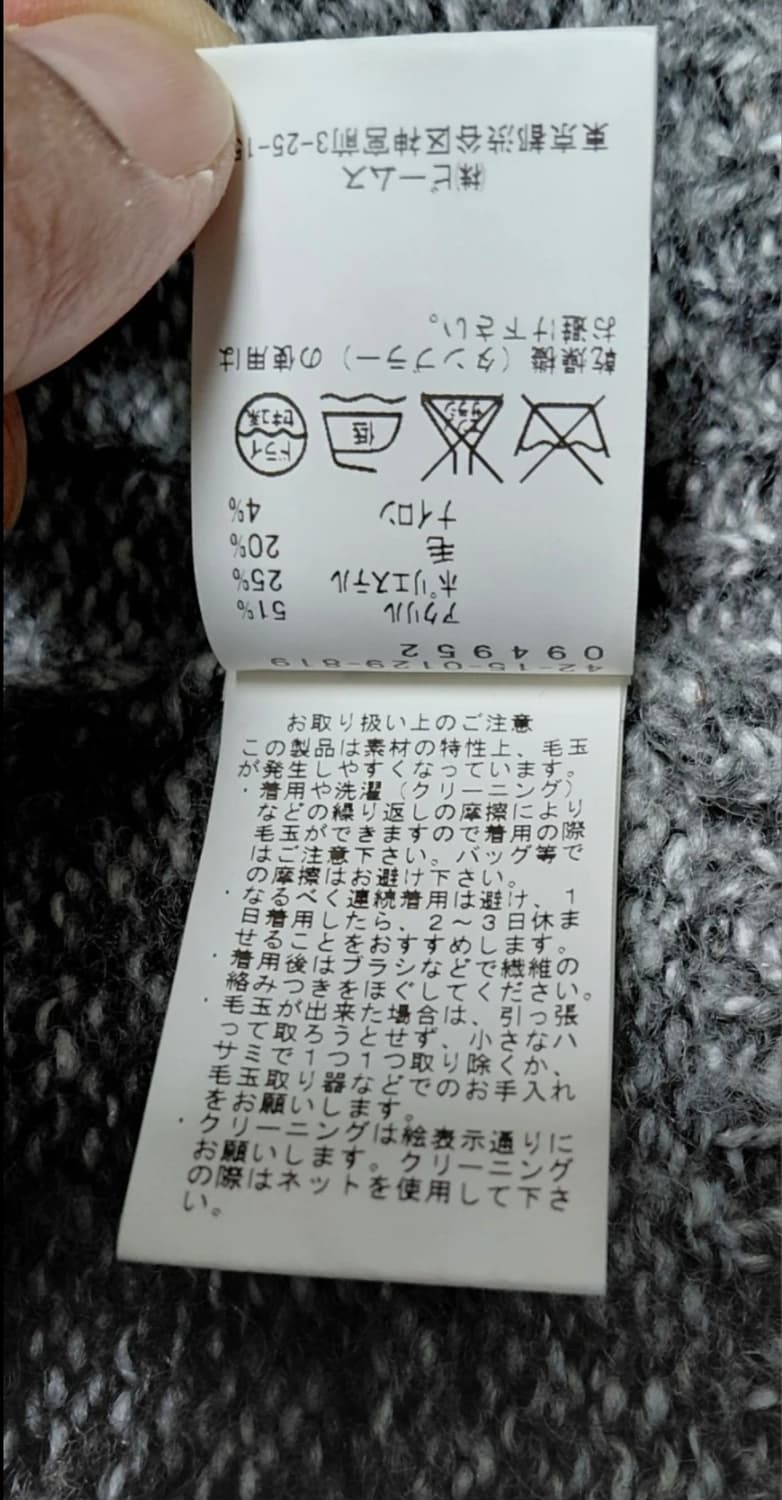 42-15-0129-819
094952
アクリル 51%
ポリエステル 25%
毛 20%
ナイロン 4%
エンソ
サラシ
低
ドライ
セキユ系
乾燥機(タンブラー)の使用は
お避け下さい。
㈱ビームス
東京都渋谷区神宮前3-25-15
お取り扱い上のご注意
この製品は素材の特性上、毛玉
が発生しやすくなっています。
・着用や洗濯(クリーニング)
などの繰り返しの摩擦により
毛玉ができますので着用の際
はご注意下さい。バッグ等で
の摩擦はお避け下さい。
・なるべく連続着用は避け、1
日着用したら、2~3日休ま
せることをおすすめします。
・着用後はブラシなどで繊維の
絡みつきをほぐしてください。
・毛玉が出来た場合は、引っ張
って取ろうとせず、小さなハ
サミで1つ1つ取り除くか、
毛玉取り器などでのお手入れ
をお願いします。
・クリーニングは絵表示通りに
お願いします。クリーニング
の際はネットを使用して下さ
い。